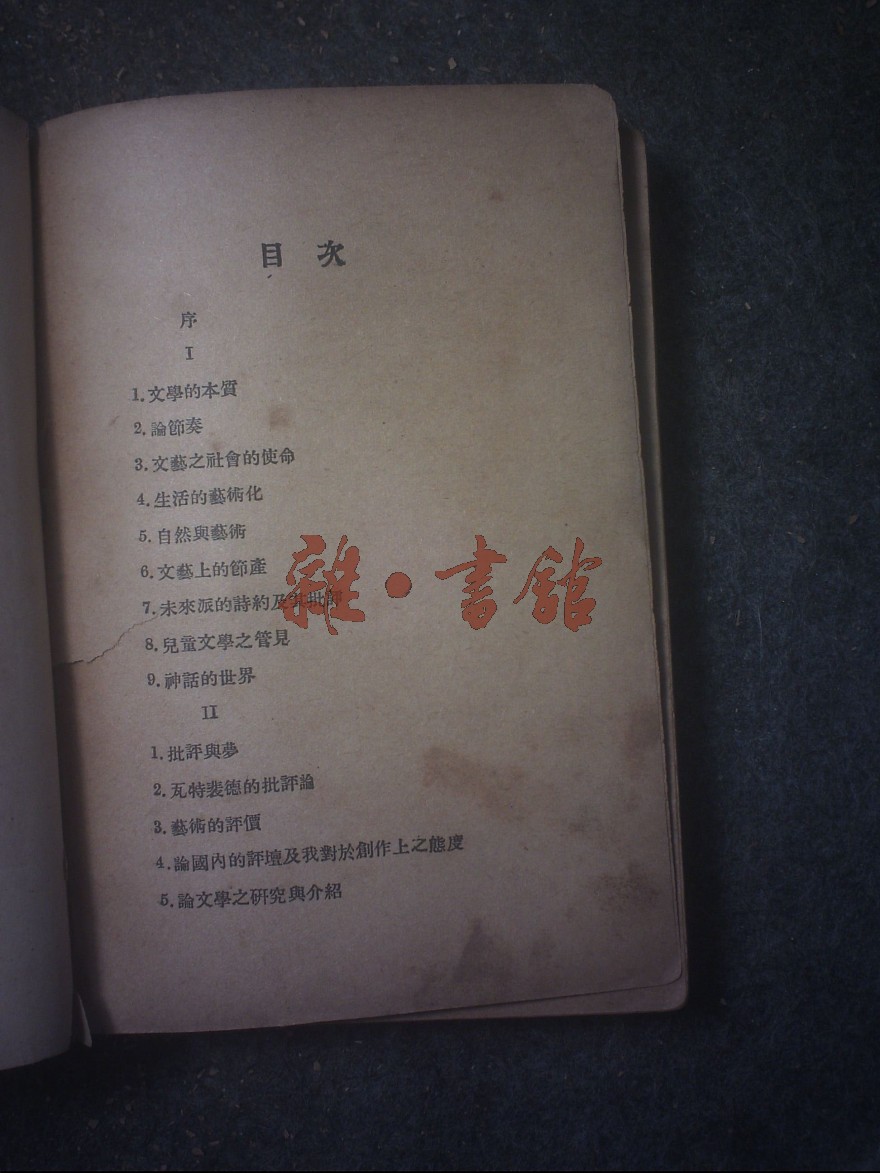 目次
序
I
1.文學的本質
2.論節奏
3.文藝之社會的使命
4.生活的藝術化
5.自然與藝術
6.文藝上的節產
7.未來派的詩約及其批評
8.兒童文學之管見
9.神話的世界
II
1.批評與夢
2.瓦特裴德的批評論
3.藝術的評價
4.論國內的評壇及我對於創作上之態度
5.論文學之研究與介紹
雜·書館